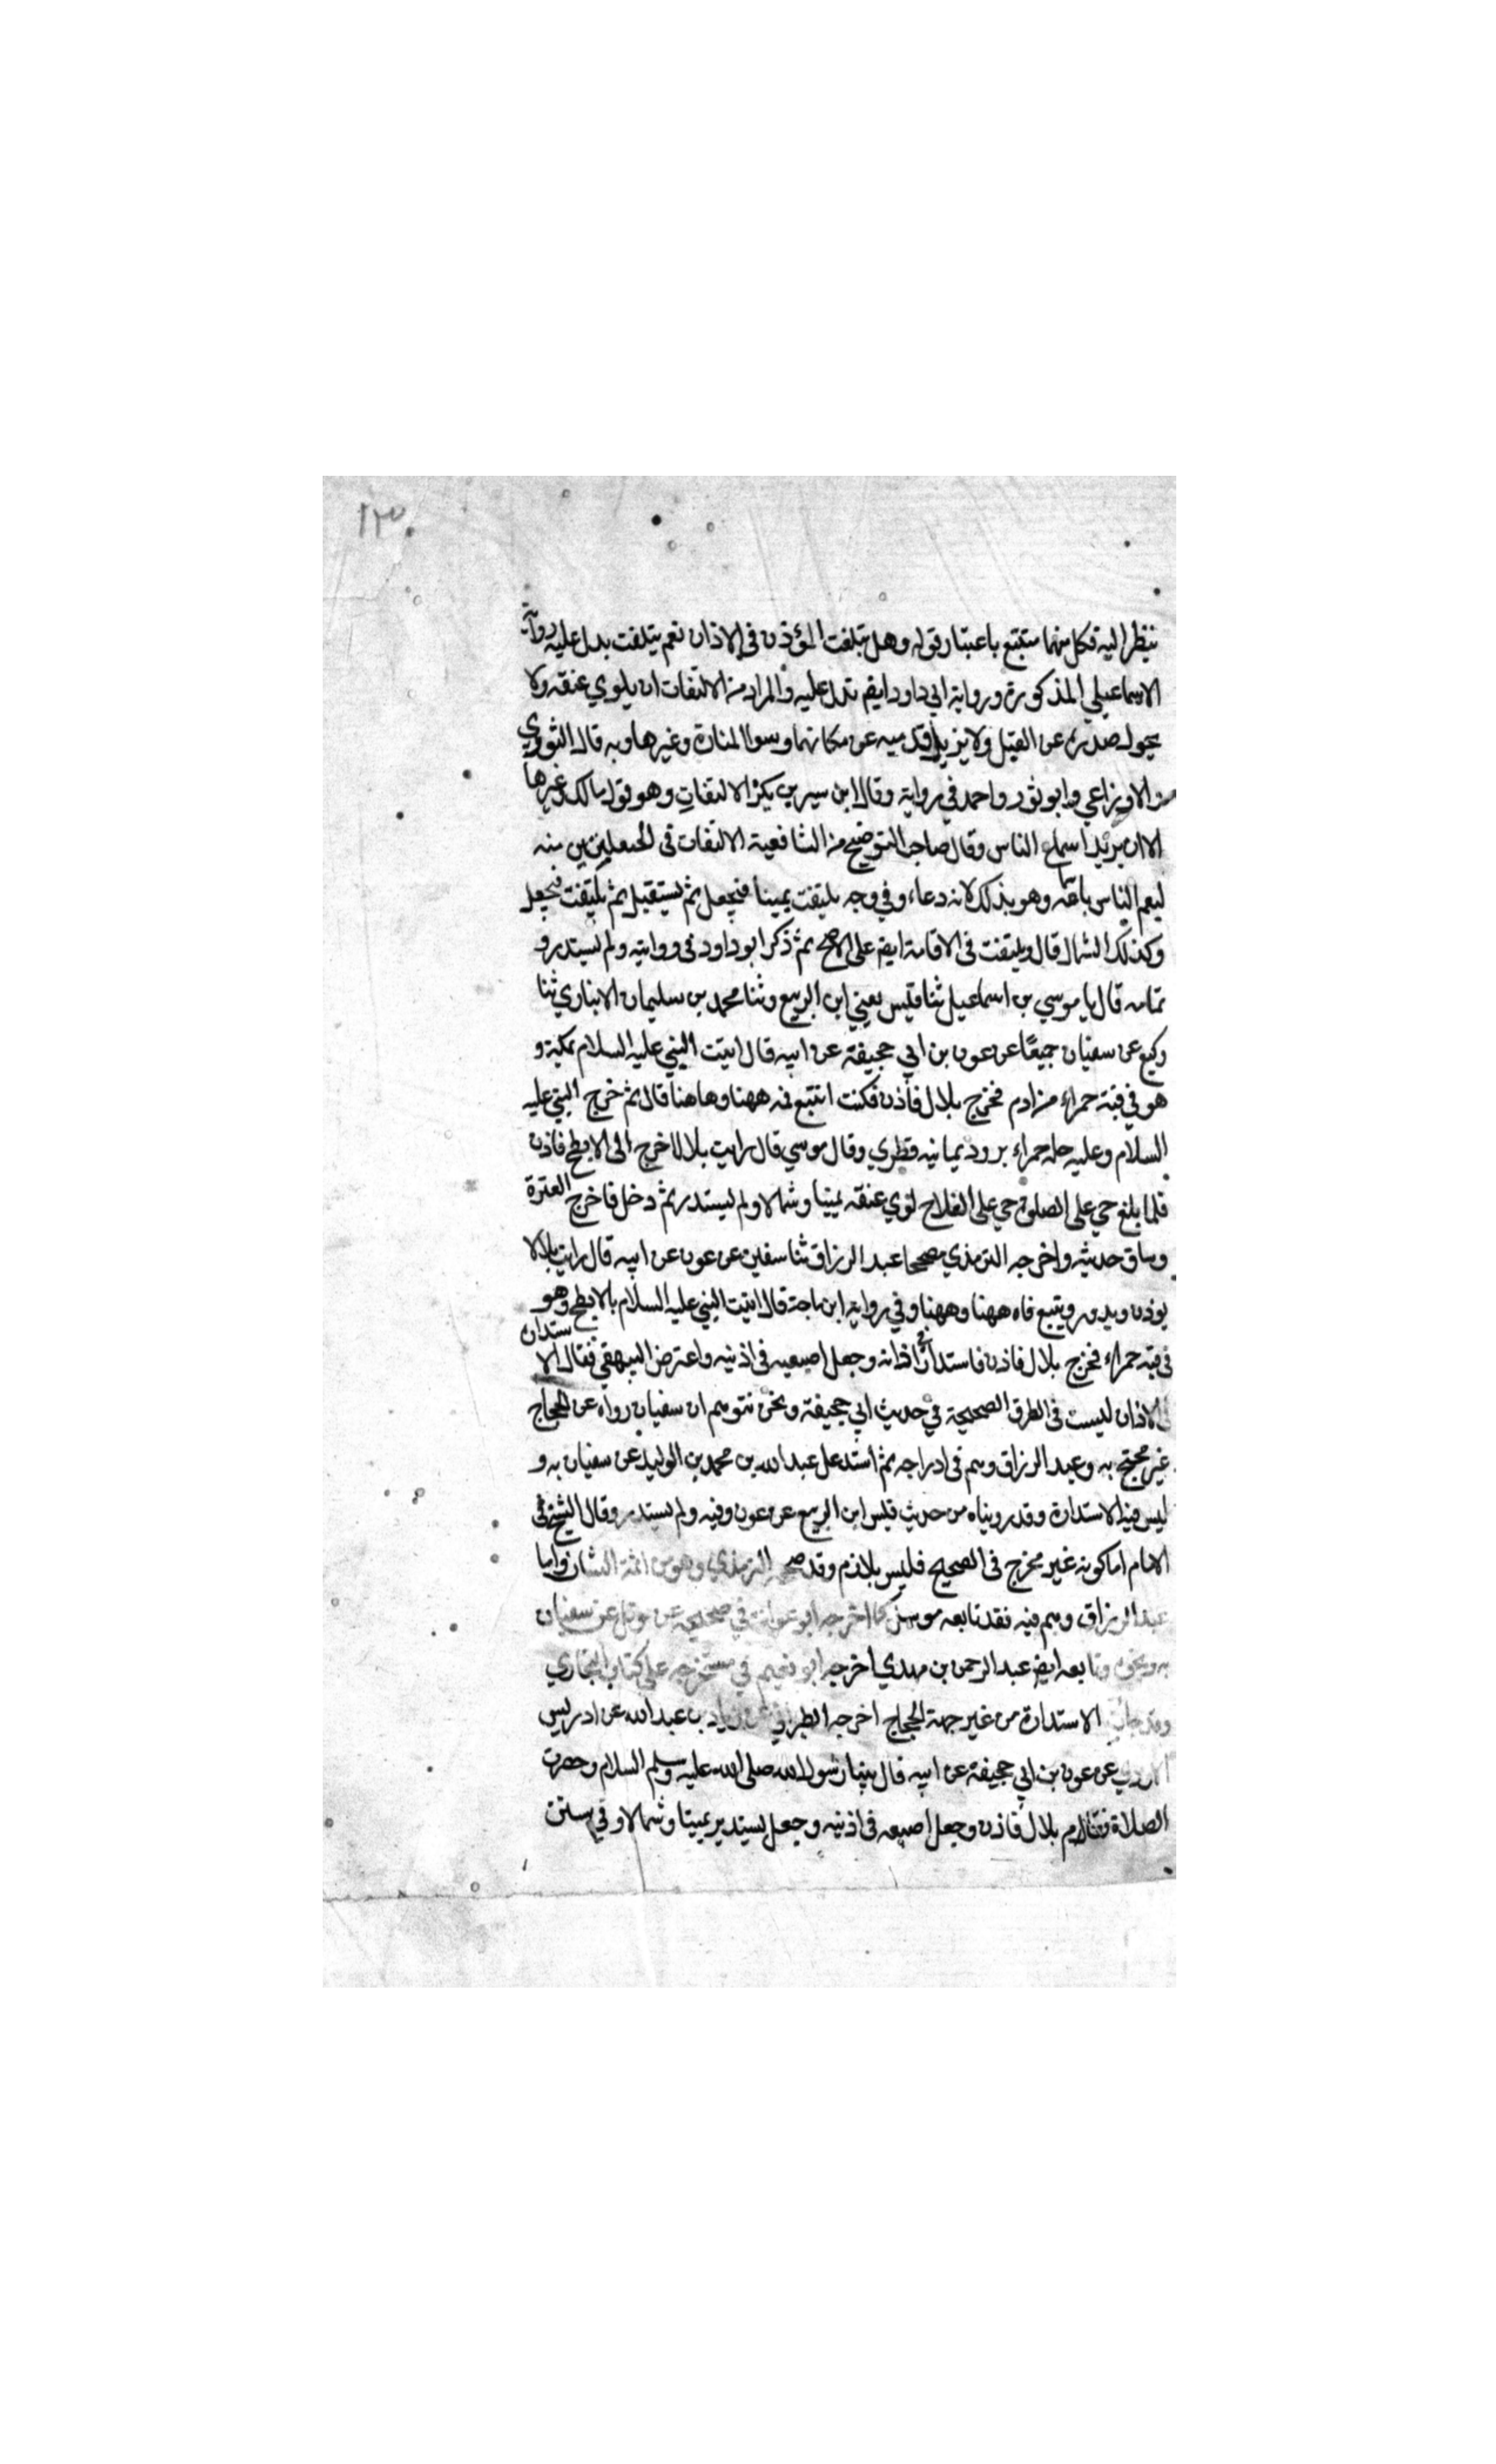 ١٣٠
ينظر اليه فكل منهما متتبع باعتبار قوله وهل يتلفت المؤذن في الاذان نعم يتلفت يدل عليه رواية
الاسماعيلي المذكورة ورواية ابي داود ايضا تدل عليه والمراد من الالتفات ان يلوي عنقه ولا
يحول صدره عن القبل ولا يزيل قدميه عن مكانهما وسوا المنارة وغيرها وبه قال الثوري
والاوزاعي وابو ثور واحمد في رواية وقال ابن سيرين يكره الالتفات وهو قول مالك وغيرها
الا ان يريد اسماع الناس وقال صاحب التوضيح من الشافعية الالتفات في الحيعلتين سنه
ليعم الناس باسماعه وهو بذلك لانه دعاء وفي وجه يلتفت يمينا فيحيعل ثم يستقبل ثم يلتفت فيحيعل
وكذلك الشمال قال ويلتفت في الاقامة ايضا على الاصح ثم ذكر ابو داود في روايته ولم يستدر و
تمامه قال يا موسي بن اسماعيل ثنا قيس يعني ابن الربيع وثنا محمد بن سليمان الانباري ثنا
وكيع عن سفيان جميعا عن عون بن ابي جحيفة عن ابيه قال اتيت النبي عليه السلام بمكة و
هو في قبة حمراء من ادم فخرج بلال فأذن فكنت اتتبع فمه ههنا وهاهنا قال ثم خرج النبي عليه
السلام وعليه حله حمراء برود يمانيه قطري وقال موسي قال رايت بلالا خرج الى الابطح فاذن
فلما بلغ حي على الصلوة حي على الفلاح لوي عنقه يمينا وشمالا ولم يستدر ثم دخل فاخرج العنزة
وساق حديثه واخرجه الترمذي مصححا عبد الرزاق ثنا سفين عن عون عن ابيه قال رايت بلالا
يوذن ويدور ويتبع فاه ههنا وههنا وفي رواية ابن ماجة قال اتيت النبي عليه السلام بالابطح وهو
في قبة حمراء فخرج بلال فاذن فاستدار في اذانه وجعل اصبعيه في اذنيه واعترض البيهقي فقال الاستدارة
في الاذان ليست في الطرق الصحيحة في حديث ابي جحيفة ونحن نتوهم ان سفيان رواه عن الحجاج
غير محتج به وعبد الرزاق وهم في ادراجه ثم استدل على عبد الله بن محمد بن الوليد عن سفيان به و
ليس فيه الاستدارة وقد رويناه من حديث قيس ابن الربيع عن عون وفيه ولم يستدر وقال الشيخ في
الامام اما كونه غير مخرج في الصحيح فليس بلازم وقد صححه الترمذي وهو من ائمة الشان واما
عبد الرزاق وهم فيه فقد تابعه مومل كما اخرجه ابو عوانة في صحيحه عن مومل عن سفيان
به ونحوه وتابعه ايضا عبد الرحمن بن مهدي اخرجه ابو نعيم في مستخرجه على كتاب البخاري
وقد جاءت الاستدارة من غير جهة الحجاج اخرجه الطبراني عن زياد بن عبد الله عن ادريس
الاودي عن عون بن ابي جحيفة عن ابيه قال بينا رسول الله صلى الله عليه وسلم السلام وحضرت
الصلاة فقام بلال فاذن وجعل اصبعه في اذنيه وجعل يستدير يمينا وشمالا وفي سنن